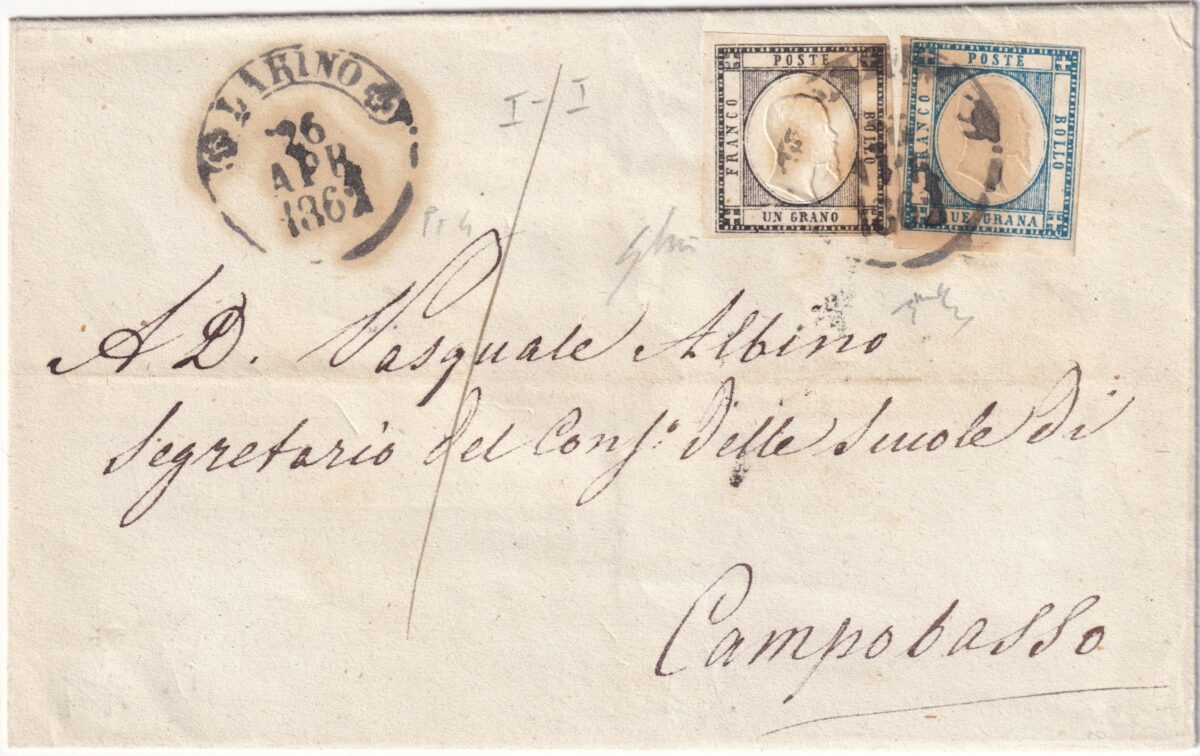 LARINO
26
APR
1862
I-I
POSTE
FRANCO
BOLLO
UN GRANO
POSTE
FRANCO
BOLLO
UE GRANA
A D. Pasquale Albino
Segretario del Cons.o delle Scuole di
Campobasso